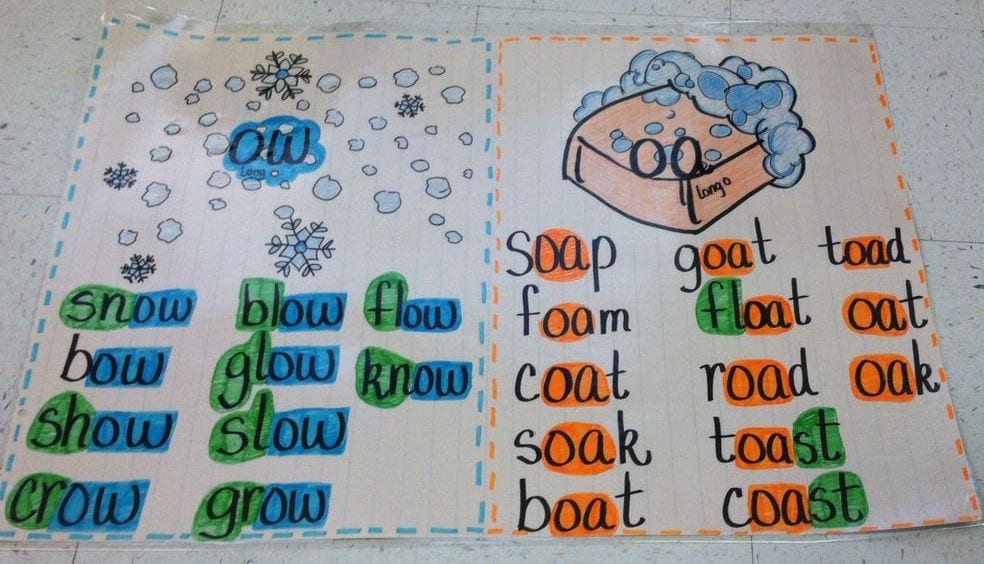 ow
long
snow blow flow
bow glow know
show slow
crow grow
oa
long o
soap goat toad
foam float oat
coat road oak
soak toast
boat coast